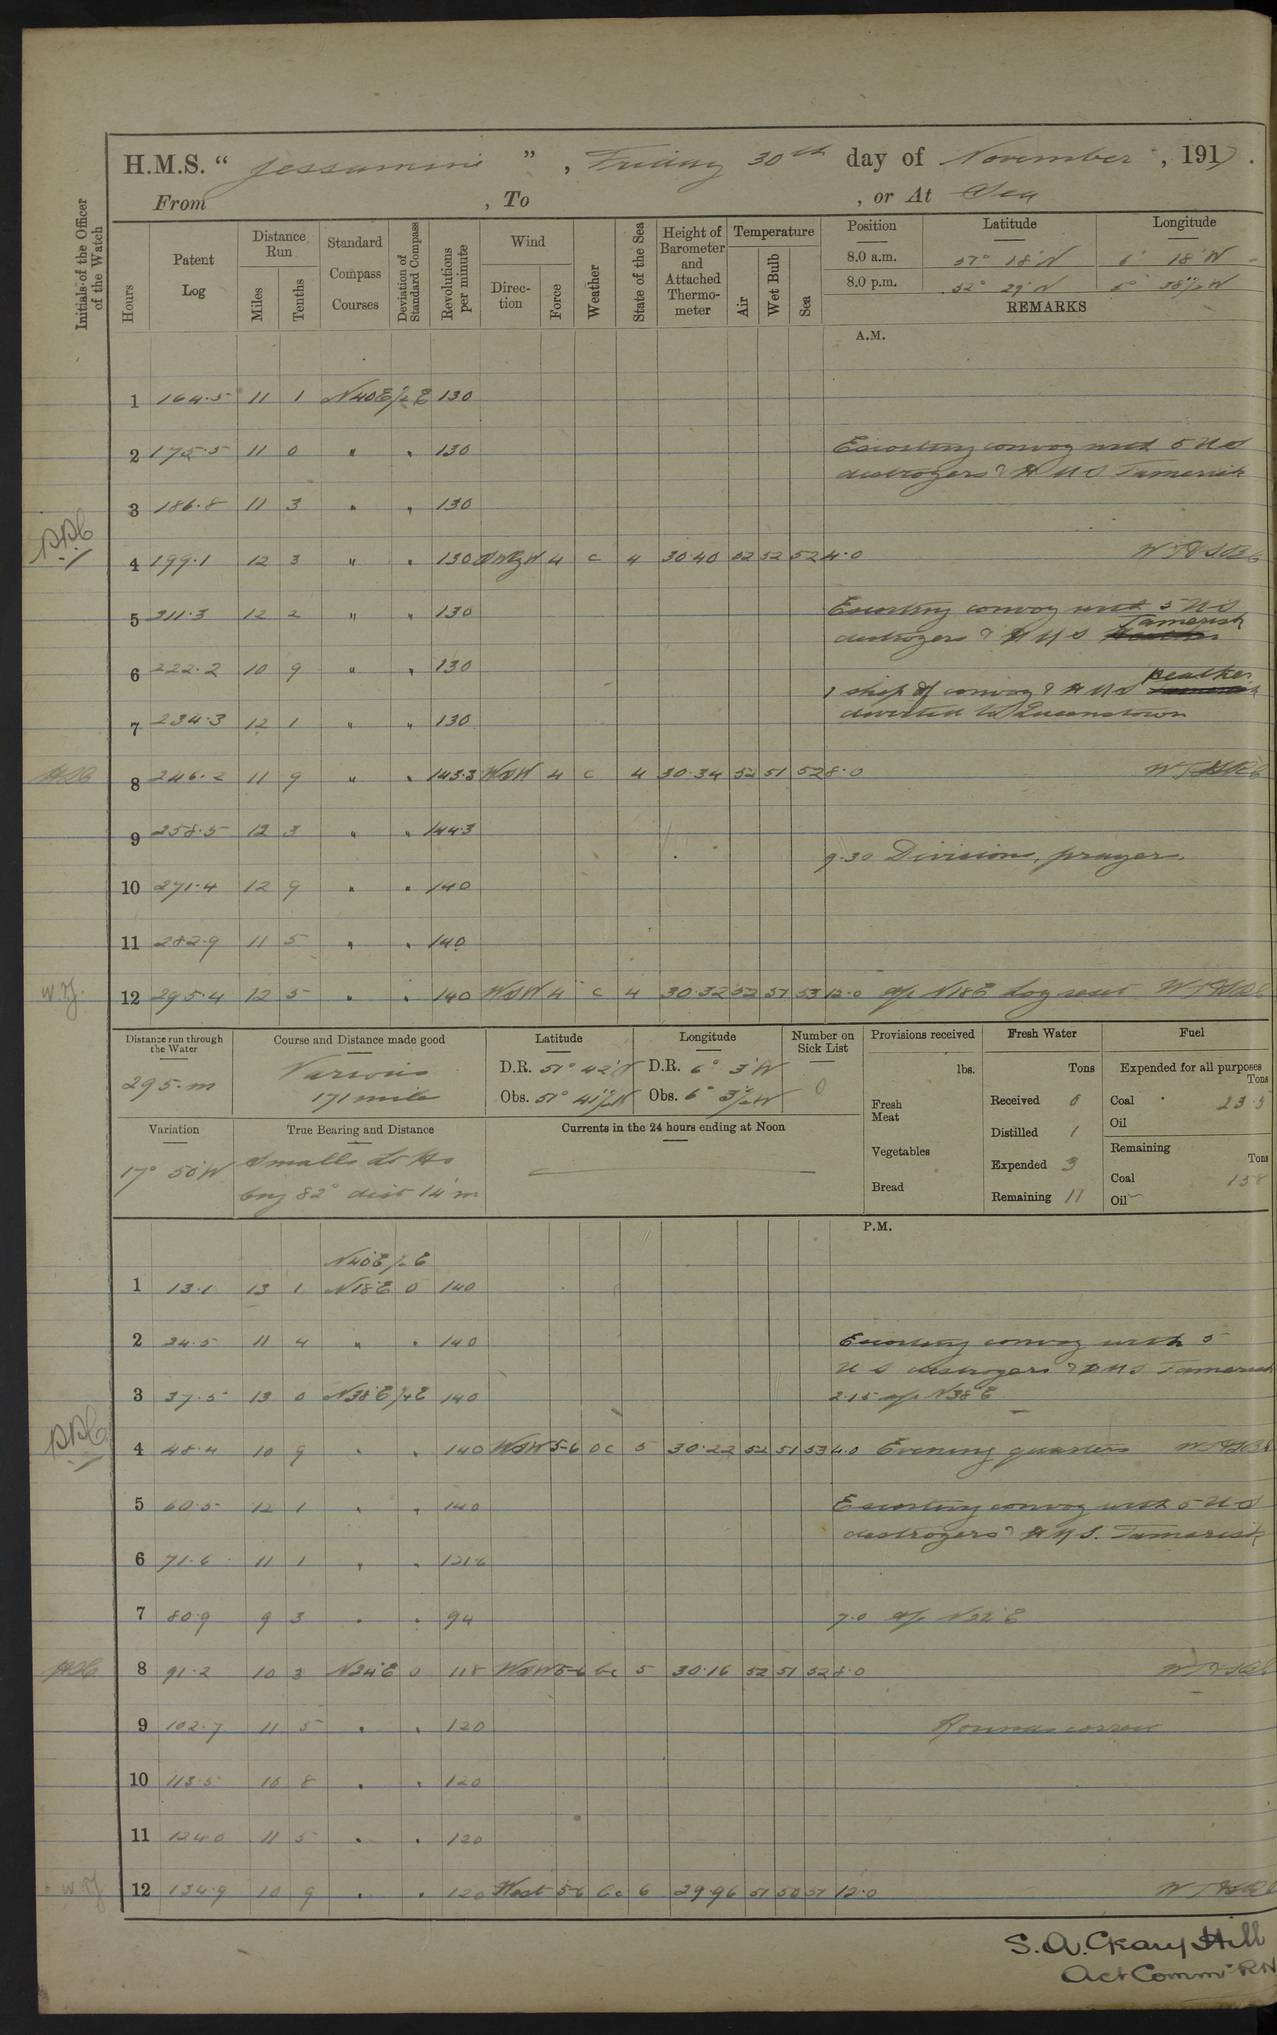 H.M.S. “ Jessamine ” , Friday 30th day of November , 1917 .
From , To , or At Sea
Initials of the Officer of the Watch
Hours
Patent Log
Distance Run
Miles
Tenths
Standard Compass Courses
Deviation of Standard Compass
Revolutions per minute
Wind
Direction
Force
Weather
State of the Sea
Height of Barometer and Attached Thermometer
Temperature
Air
Wet Bulb
Sea
Position Latitude Longitude
8.0 a.m. 51° 18'N 6° 18'W
8.0 p.m. 52° 29'N 5° W
REMARKS
A.M.
1 164.5 11 1 N40E ½E 130
2 175.5 11 0 " " 130 Escorting convoy with 5 US
destroyers & HMS Tamarisk
3 186.8 11 3 " " 130
4 199.1 12 3 " " 130 SWbyW 4 c 4 30.40 52 52 52 4.0
5 211.3 12 2 " " 130 Escorting convoy with 5 US
destroyers & HMS Tamarisk
6 222.2 10 9 " " 130
1 ship of convoy & HMS Heather
7 234.3 12 1 " " 130 diverted to Queenstown
8 246.2 11 9 " " 143.3 WSW 4 c 4 30.34 52 51 52 8.0
9 258.5 12 3 " " 144.3
9.30 Divisions, prayers.
10 271.4 12 9 " " 140
11 282.9 11 5 " " 140
12 295.4 12 5 " " 140 WSW 4 c 4 30.32 52 51 53 12.0 a/c N18E Log reset
Distance run through the Water
295.m
Course and Distance made good
Various
171 miles
Latitude
D.R. 51° 42'N
Obs. 51° 41½'N
Longitude
D.R. 6° 3'W
Obs. 6° 3½'W
Number on Sick List
0
Provisions received
lbs.
Fresh Meat
Vegetables
Bread
Fresh Water
Tons
Received 0
Distilled 1
Expended 3
Remaining 11
Fuel
Expended for all purposes
Tons
Coal 23.5
Oil
Remaining
Tons
Coal 158
Oil
Variation
17° 50'W
True Bearing and Distance
Smalls Lt Ho
brg 82° dist 14'm
Currents in the 24 hours ending at Noon
P.M.
N40E ½E
1 13.1 13 1 N18E 0 140
2 24.5 11 4 " " 140 Escorting convoy with 5
US destroyers & HMS Tamarisk
3 37.5 13 0 N38E ¼E 140 2.15 a/c N38E
4 48.4 10 9 " " 140 WSW 5-6 oc 5 30.22 52 51 53 4.0 Evening quarters
5 60.5 12 1 " " 140 Escorting convoy with 5 US
destroyers & HMS. Tamarisk
6 71.6 11 1 " " 121.6
7 80.9 9 3 " " 94 7.0 a/c E
8 91.2 10 3 0 118 WSW 5-6 bc 5 30.16 52 51 52 8.0
9 102.7 11 5 " " 120 Rounds correct
10 113.5 10 8 " " 120
11 124.0 11 5 " " 120
12 134.9 10 9 " " 120 West 5-6 bc 6 29.96 51 50 51 12.0
S.A. Geary Hill
Act Commr RN